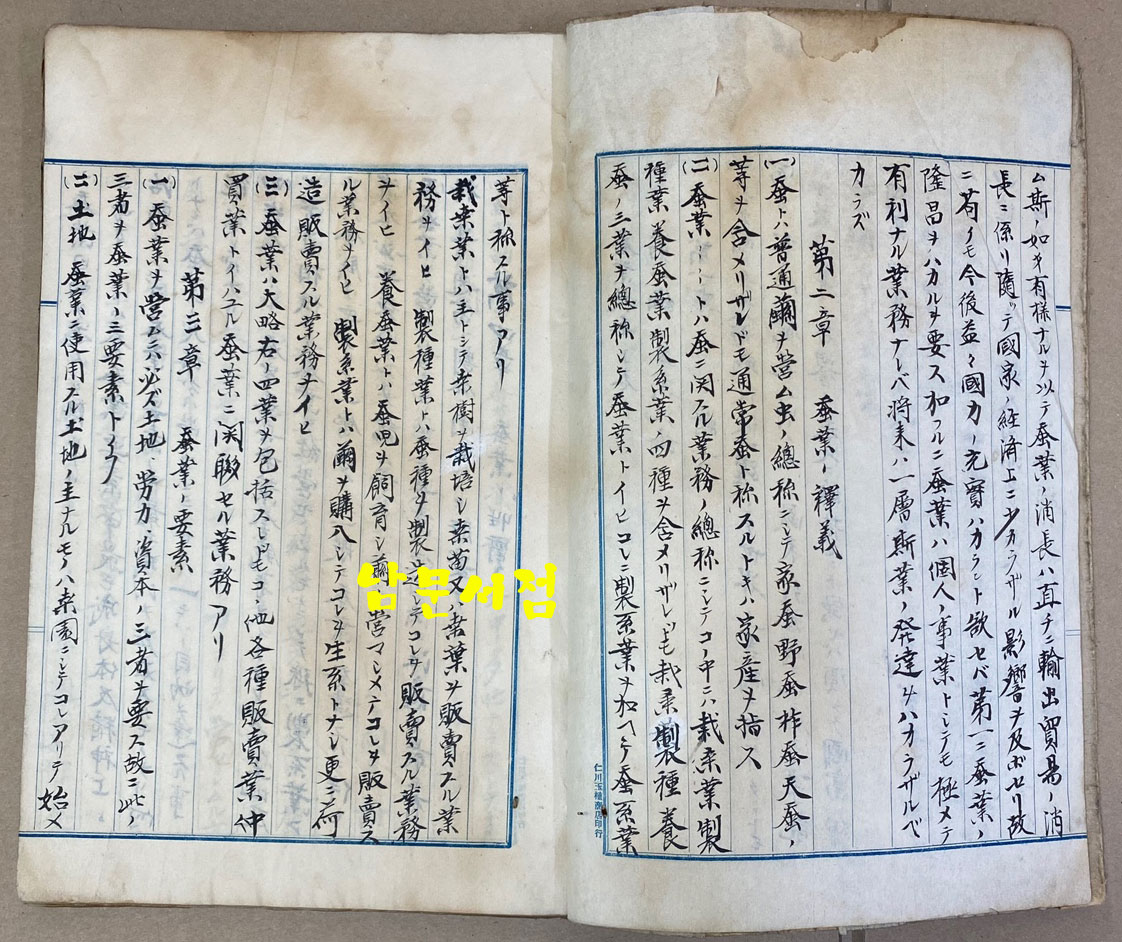 ム斯ノ如キ有様ナルヲ以テ蚕業ノ消長ハ直チニ輸出貿易ノ消
長ニ係リ随ッテ國家ノ経済上ニ少カラザル影響ヲ及ボセリ故
ニ苟クモ今後益々國力ノ充實ハカラント欲セバ第一ニ蚕業ノ
隆昌ヲハカルヲ要ス加フルニ蚕業ハ個人ノ事業トシテモ極メテ
有利ナル業務ナレバ将来ハ一層斯業ノ発達ヲハカラザルベ
カラズ
第二章 蚕業ノ釋義
(一)蚕トハ普通繭ヲ営ム虫ノ總称ニシテ家蚕野蚕柞蚕天蚕ノ
等ヲ含メリザレドモ通常蚕ト称スルトキハ家産ヲ指ス
(二)蚕業トハ蚕ニ関スル業務ノ總称ニシテコノ中ニハ栽桑業製
種業養蚕業製糸業ノ四種ヲ含メリザレドモ栽桑製種養
蚕ノ三業ヲ總称シテ蚕業トイヒコレニ製糸業ヲ加ヘテ蚕糸業
等ト称スル事アリ
栽桑業トハ主トシテ桑樹ヲ栽培シ桑苗又ハ桑葉ヲ販賣スル業
務ヲイヒ 製種業トハ蚕種ヲ製造シテコレヲ販賣スル業務
ヲイヒ 養蚕業トハ蚕児ヲ飼育シ繭営マシメテコレヲ販賣ス
ル業務ヲイヒ 製糸業トハ繭ヲ購入シテコレヲ生糸トナシ更ニ荷
造販賣スル業務ヲイヒ
(三)蚕業ハ大略右ノ四業ヲ包括スレドモコノ他各種販賣業仲
買業トイハユル蚕業ニ関聯セル業務アリ
第三章 蚕業ノ要素
(一)蚕業ヲ営ムニハ必ズ土地 労力 資本ノ三者ヲ要ス故ニ此ノ
三者ヲ蚕業ノ三要素トイフ
(二)土地 蚕業ニ使用スル土地ノ主ナルモノハ桑園ニシテコレアリテ始メ
仁川玉種商店印行
남문서점